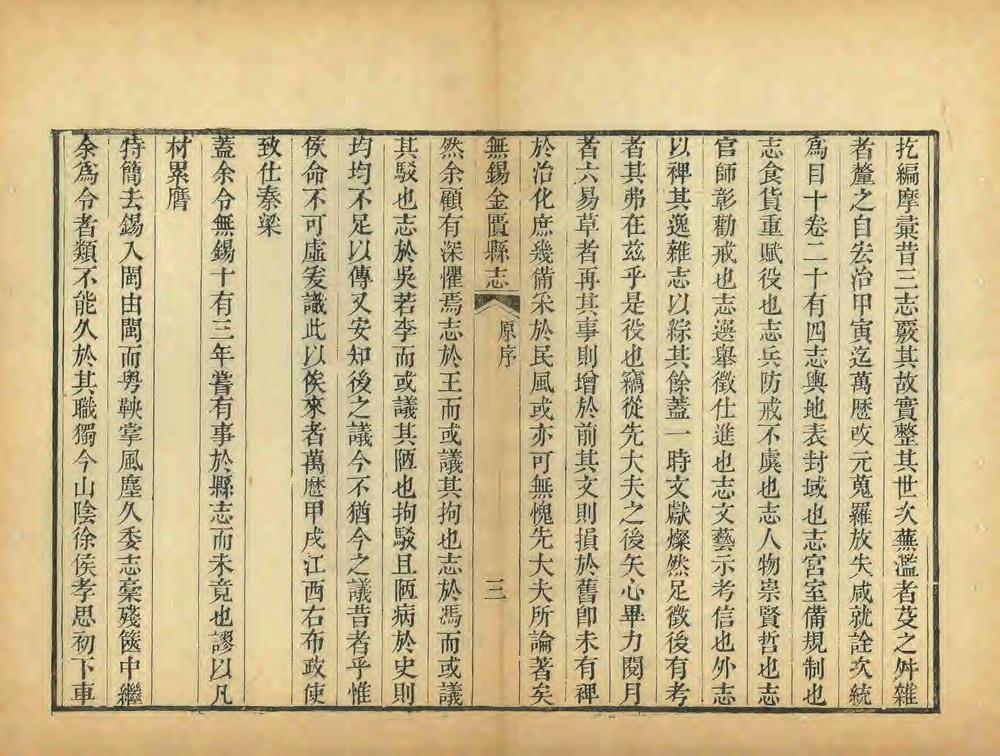 扢編摩彚昔三志覈其故實整其世次蕪濫者芟之舛雜
者釐之自宏治甲寅迄萬厯攺元蒐羅放失咸就詮次統
爲目十卷二十有四志輿地表封域也志宮室備規制也
志食貨重賦役也志兵防戒不虞也志人物崇賢哲也志
官師彰勸戒也志選舉徵仕進也志文藝示考信也外志
以禆其逸雜志以綜其餘蓋一時文獻燦然足徵後有考
者其弗在兹乎是役也竊從先大夫之後矢心畢力閱月
者六易草者再其事則增於前其文則損於舊卽未有禆
於治化庶幾備采於民風或亦可無愧先大夫所論著矣
無錫金匱縣志 原序 三
然余顧有深懼焉志於王而或議其拘也志於馮而或議
其駁也志於吳若李而或議其陋也拘駁且陋病於史則
均均不足以傳又安知後之議今不猶今之議昔者乎惟
侯命不可虛爰識此以俟來者萬厯甲戌江西右布政使
致仕秦梁
蓋余令無錫十有三年嘗有事於縣志而未竟也謬以凡
材累膺
特簡去錫入閩由閩而粤鞅掌風塵久委志稾殘篋中繼
余爲令者類不能久於其職獨今山陰徐侯孝思初下車